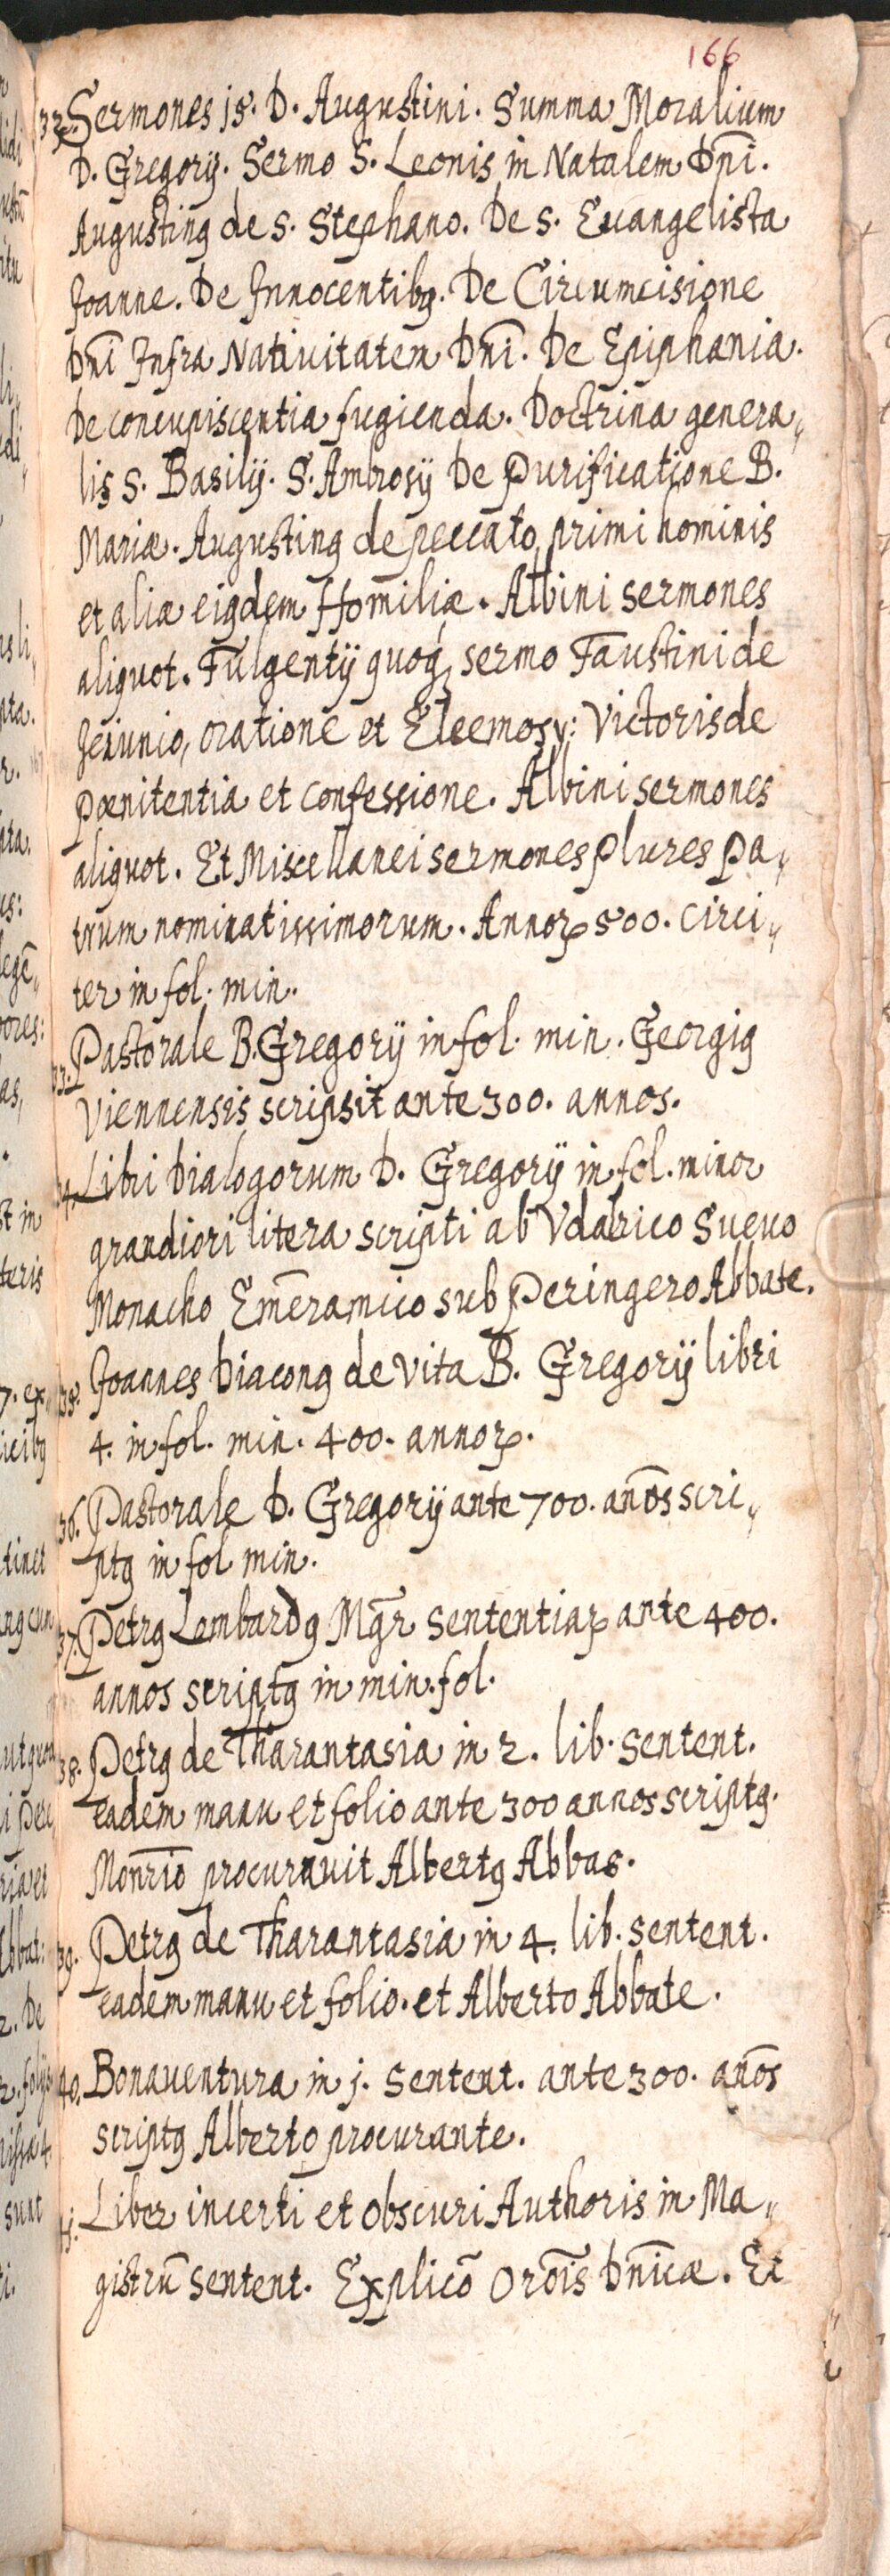 166
32. Sermones 15. D. Augustini. Summa Moralium
D. Gregorÿ. Sermo S. Leonis in Natalem Dñi.
Augustinꝰ de S. Stephano. De S. Euangelista
Joanne. De Innocentibꝰ. De Circumcisione
Dñi Infra Natiuitatem Dñi. De Epiphania.
De concupiscentia fugienda. Doctrina genera„
lis S. Basilÿ. S. Ambrosÿ De Purificatione B.
Mariæ. Augustinꝰ de peccato primi hominis
et aliæ eiꝰdem Homiliæ. Albini sermones
aliquot. Fulgentÿ quoqꝫ sermo Faustini de
Jeiunio, oratione et Eleemosy: Victoris de
Pœnitentia et confessione. Albini sermones
aliquot. Et Miscellanei sermones plures Pa„
trum nominatissimorum. Annoꝝ 500. Circi„
ter in fol. min.
33. Pastorale B. Gregorÿ in fol. min. Georgiꝰ
Viennensis scripsit ante 300. annos.
34. Libri Dialogorum D. Gregorÿ in fol. minor
grandiori litera scripti ab Vdalrico Sueuo
Monacho Em̄eramico sub Peringero Abbate.
35. Joannes Diaconꝰ de vita B. Gregorÿ libri
4. in fol. min. 400. annoꝝ.
36. Pastorale D. Gregorÿ ante 700. año̅s scri„
ptꝰ in fol min.
37. Petrꝰ Lombardꝰ Mgr̄ Sententiaꝝ ante 400.
annos scriptꝰ in min. fol.
38. Petrꝰ de Tharantasia in 2. lib. Sentent.
eadem manu et folio ante 300 annos scriptꝰ.
Monrīo procurauit Albertꝰ Abbas.
39. Petrꝰ de Tharantasia in 4. lib. Sentent.
eadem manu et folio. et Alberto Abbate.
40. Bonauentura in j. Sentent. ante 300. año̅s
scriptꝰ Alberto procurante.
Liber incerti et obscuri Authoris in Ma„
gistrū Sentent. Explicō Orōis Dnīcæ. Et